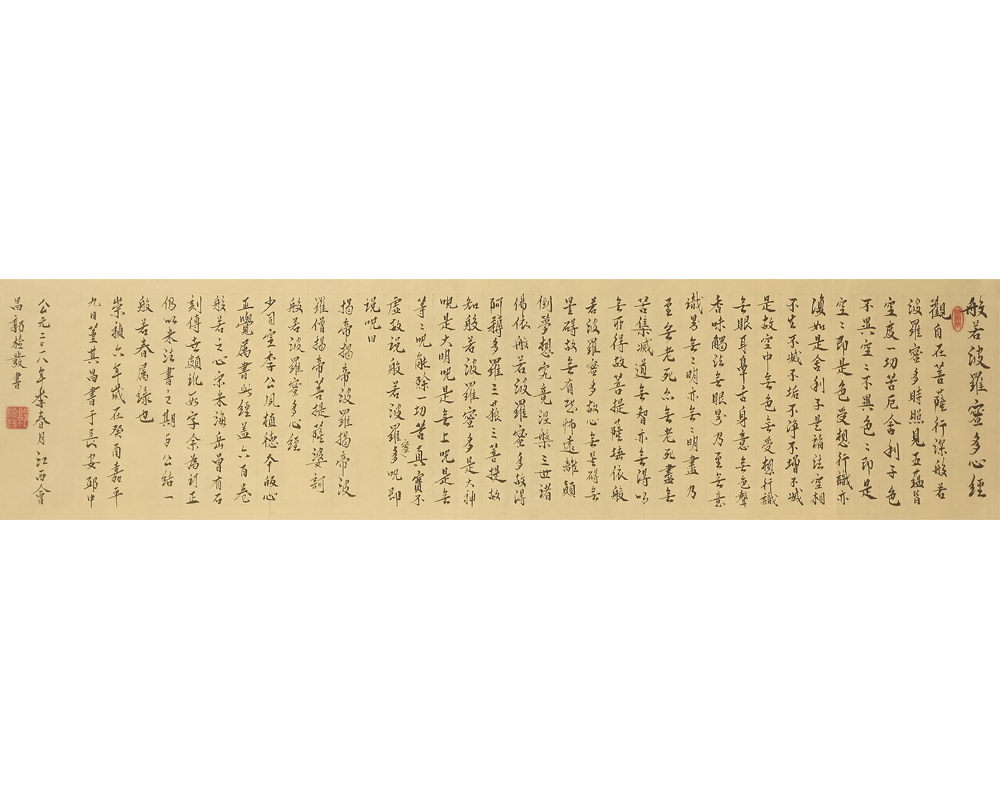 般若波羅蜜多心經
觀自在菩薩行深般若
波羅蜜多時照見五蘊皆
空度一切苦厄舍利子色
不異空空不異色色即是
空空即是色受想行識亦
復如是舍利子是諸法空相
不生不滅不垢不淨不增不減
是故空中無色無受想行識
無眼耳鼻舌身意無色聲
香味觸法無眼界乃至無意
識界無無明亦無無明盡乃
至無老死亦無老死盡無
苦集滅道無智亦無得以
無所得故菩提薩埵依般
若波羅蜜多故心無罣礙無
罣礙故無有恐怖遠離顛
倒夢想究竟涅槃三世諸
佛依般若波羅蜜多故得
阿耨多羅三藐三菩提故
知般若波羅蜜多是大神
呪是大明呪是無上呪是無
等等呪能除一切苦真實不
虛故說般若波羅蜜多呪即
說呪曰
揭帝揭帝波羅揭帝波
羅僧揭帝菩提薩婆訶
般若波羅蜜多心經
少司空李公風植德本皈心
正覺屬書此經蓋六百卷
般若之心宋米海岳曾有石
刻傳世頗訛數字余為訂正
仍以米法書之期與公結一
般若眷屬緣也
崇禎六年歲在癸酉嘉平
九日董其昌書于長安邸中
公元二〇一八年季春月江西會
昌郭 書